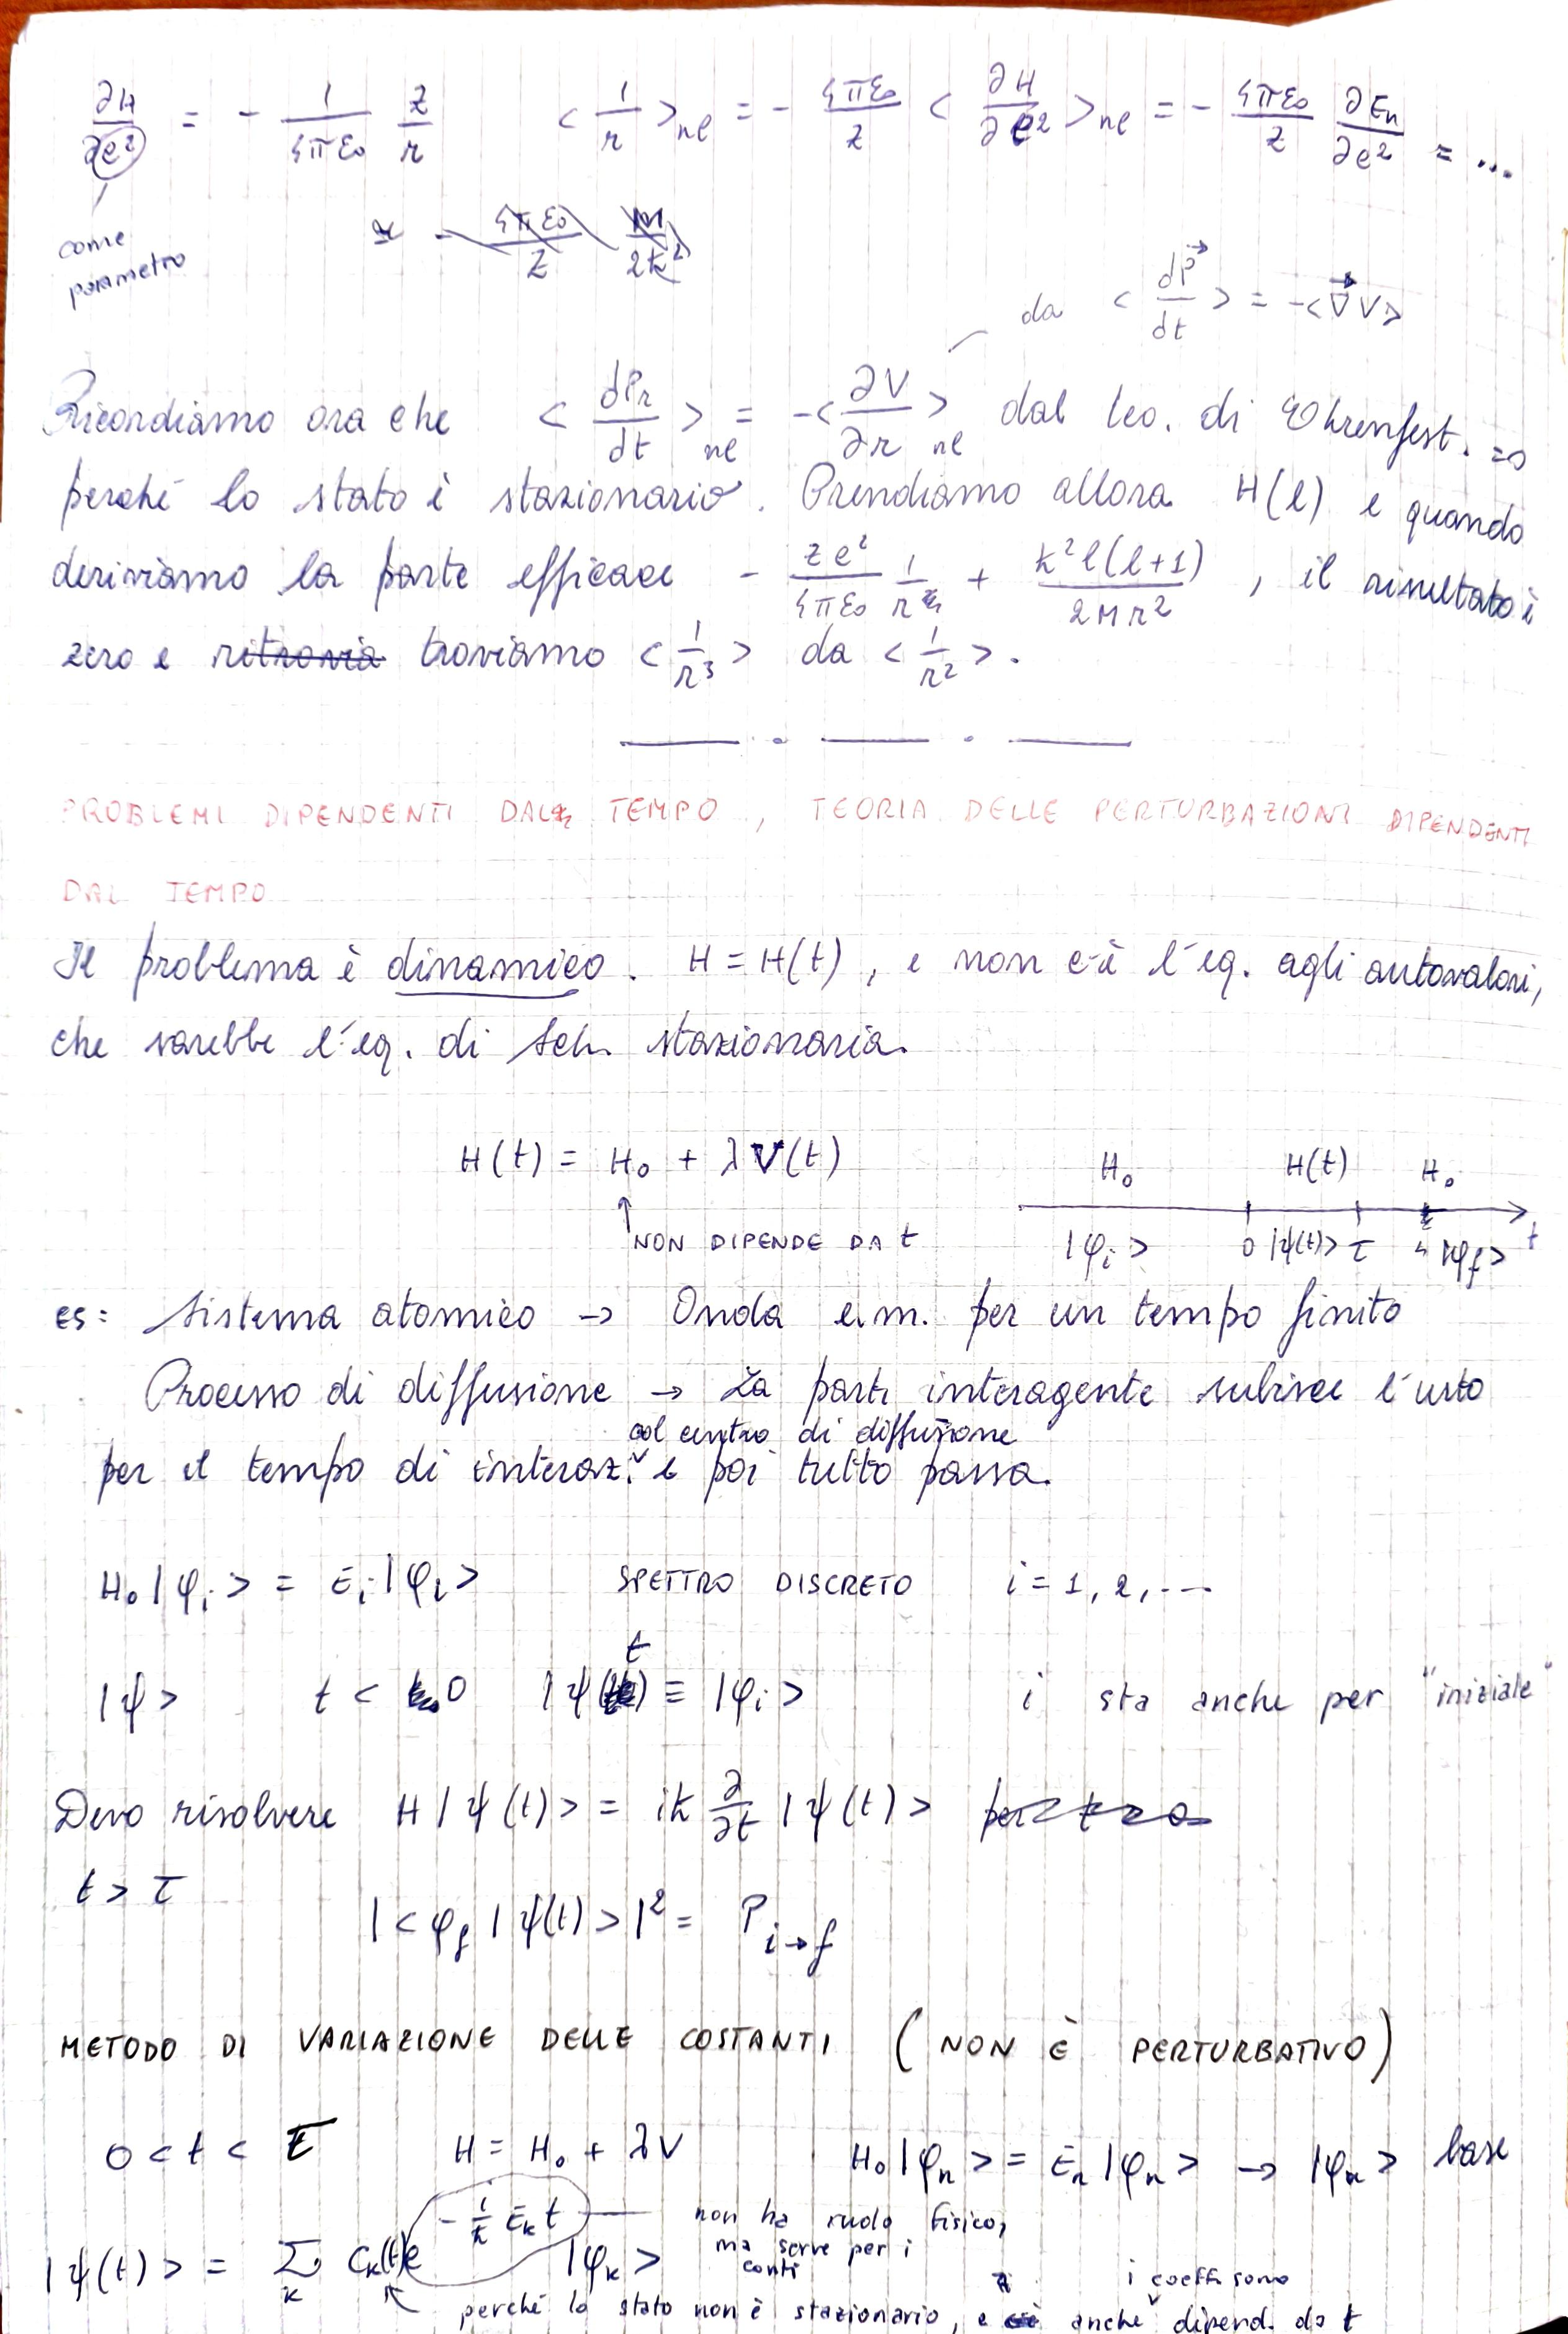 ∂H/∂e² = - 1/4πε₀ z/r   < 1/r >nl = - 4πε₀/z < ∂H/∂e² >nl = - 4πε₀/z ∂En/∂e² = ...
come
parametro
da < dP⃗/dt > = -<∇⃗V>
Ricordiamo ora che < dPr/dt >nl = -< ∂V/∂r >nl dal teo. di Ehrenfest. =0
perché lo stato è stazionario. Prendiamo allora H(l) e quando
deriviamo la parte efficace - ze²/4πε₀ 1/r + ħ²l(l+1)/2Mr² , il risultato è
zero e troviamo < 1/r³ > da < 1/r² >.
PROBLEMI DIPENDENTI DAL TEMPO, TEORIA DELLE PERTURBAZIONI DIPENDENTI
DAL TEMPO
Il problema è dinamico. H = H(t), e non c'è l'eq. agli autovalori,
che sarebbe l'eq. di Sch. stazionaria.
H(t) = H₀ + λV(t)   H₀ H(t) H₀
↑ NON DIPENDE DA t   |φi> 0 |ψ(t)> τ |φf> t
ES: Sistema atomico → Onda e.m. per un tempo finito
Processo di diffusione → La part. interagente subisce l'urto
col centro di diffusione
per il tempo di interaz. e poi tutto passa.
H₀|φi> = Ei|φi>   SPETTRO DISCRETO   i = 1, 2, ...
|ψ>   t < 0   |ψ(t) ≡ |φi>   i sta anche per "iniziale"
Devo risolvere H|ψ(t)> = iħ ∂/∂t |ψ(t)>
t > τ
|<φf|ψ(t)>|² = P i→f
METODO DI VARIAZIONE DELLE COSTANTI (NON È PERTURBATIVO)
0 < t < τ   H = H₀ + λV   H₀|φn> = En|φn> → |φn> base
|ψ(t)> = Σk ck(t)e^(-i/ħ Ek t) |φk>
non ha ruolo fisico,
ma serve per i
conti
i coeff. sono
perché lo stato non è stazionario, e anche dipend. da t